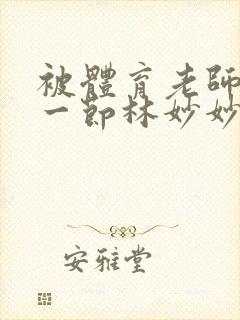 被體育老師
一節林妙妙
安雅堂